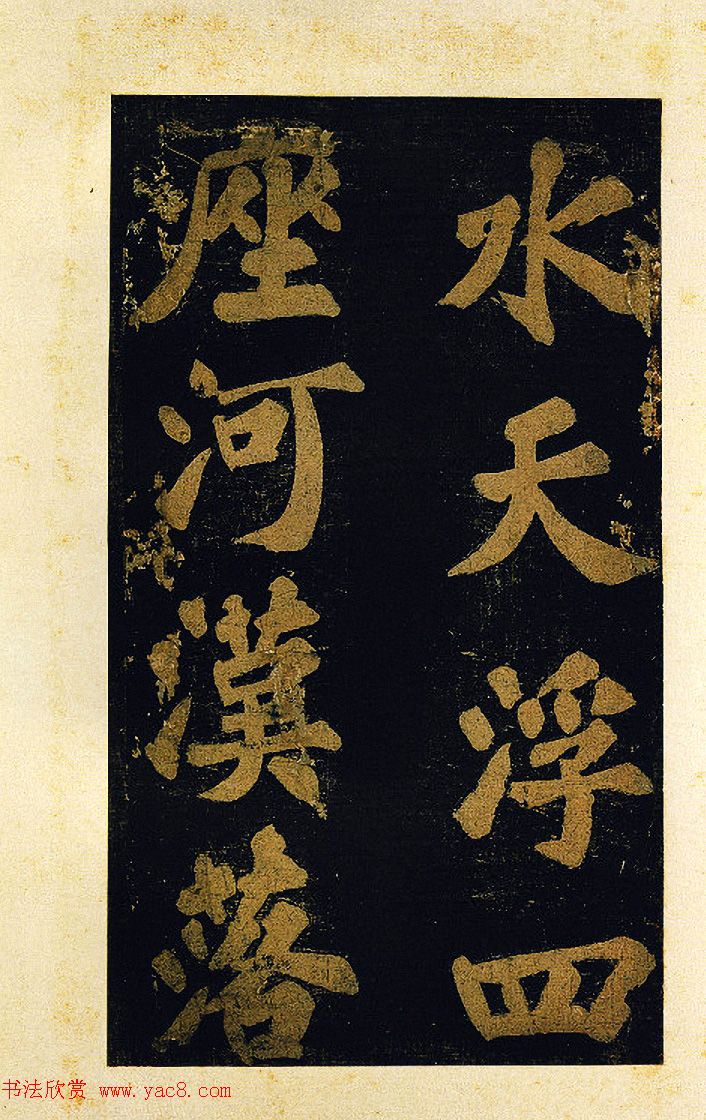 水天浮四
座河漢落
书法欣赏 www.yac8.com